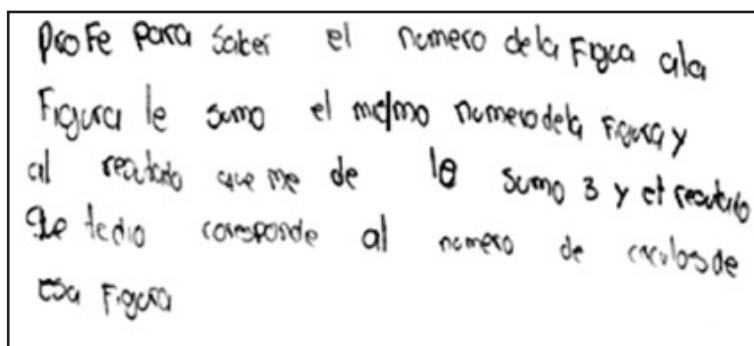 Profe para saber el numero dela Figua ala
Figura le sumo el mismo numero dela Figura y
al resutado que me de le sumo 3 y el resutado
que te dio coresponde al numero de circulos de
esa Figura